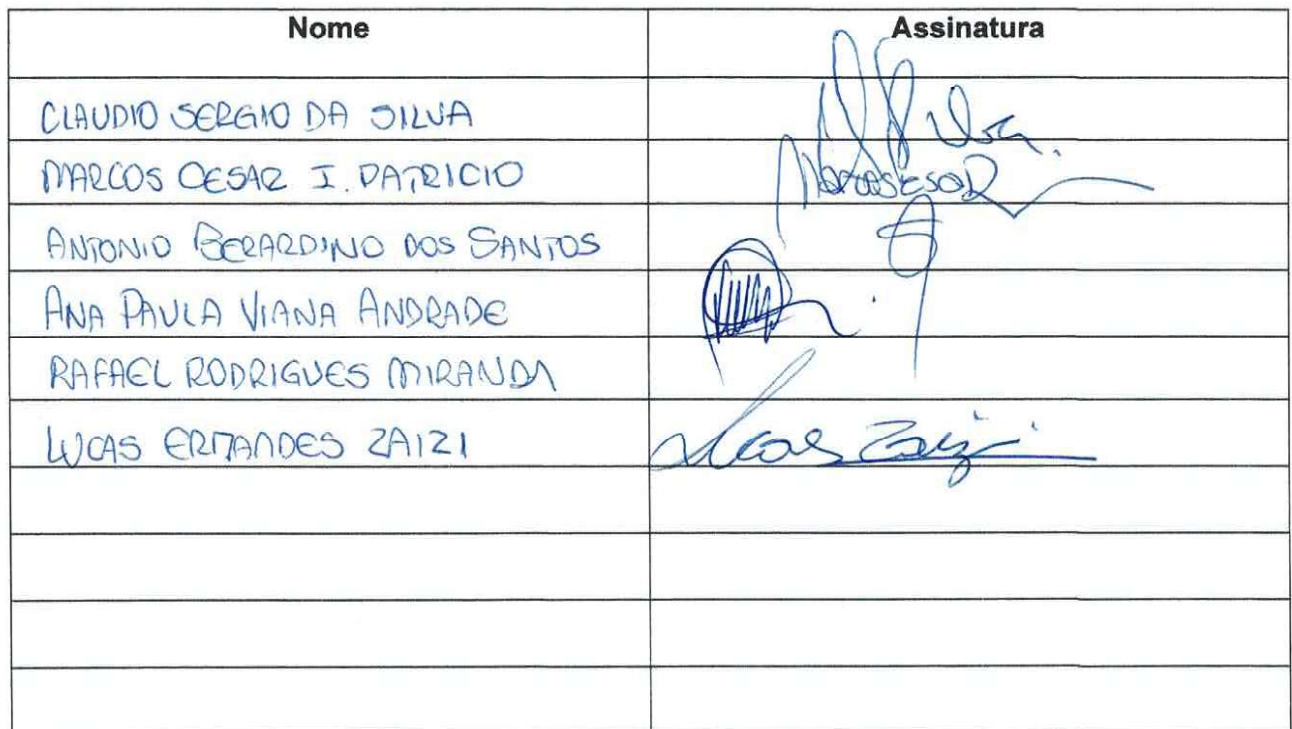 Nome Assinatura
CLAUDIO SERGIO DA SILVA
MARCOS CESAR I. PATRICIO
ANTONIO BERARDINO DOS SANTOS
ANA PAULA VIANA ANDRADE
RAFAEL RODRIGUES MIRANDA
LUCAS ERNANDES ZAIZI Lucas Zaizi